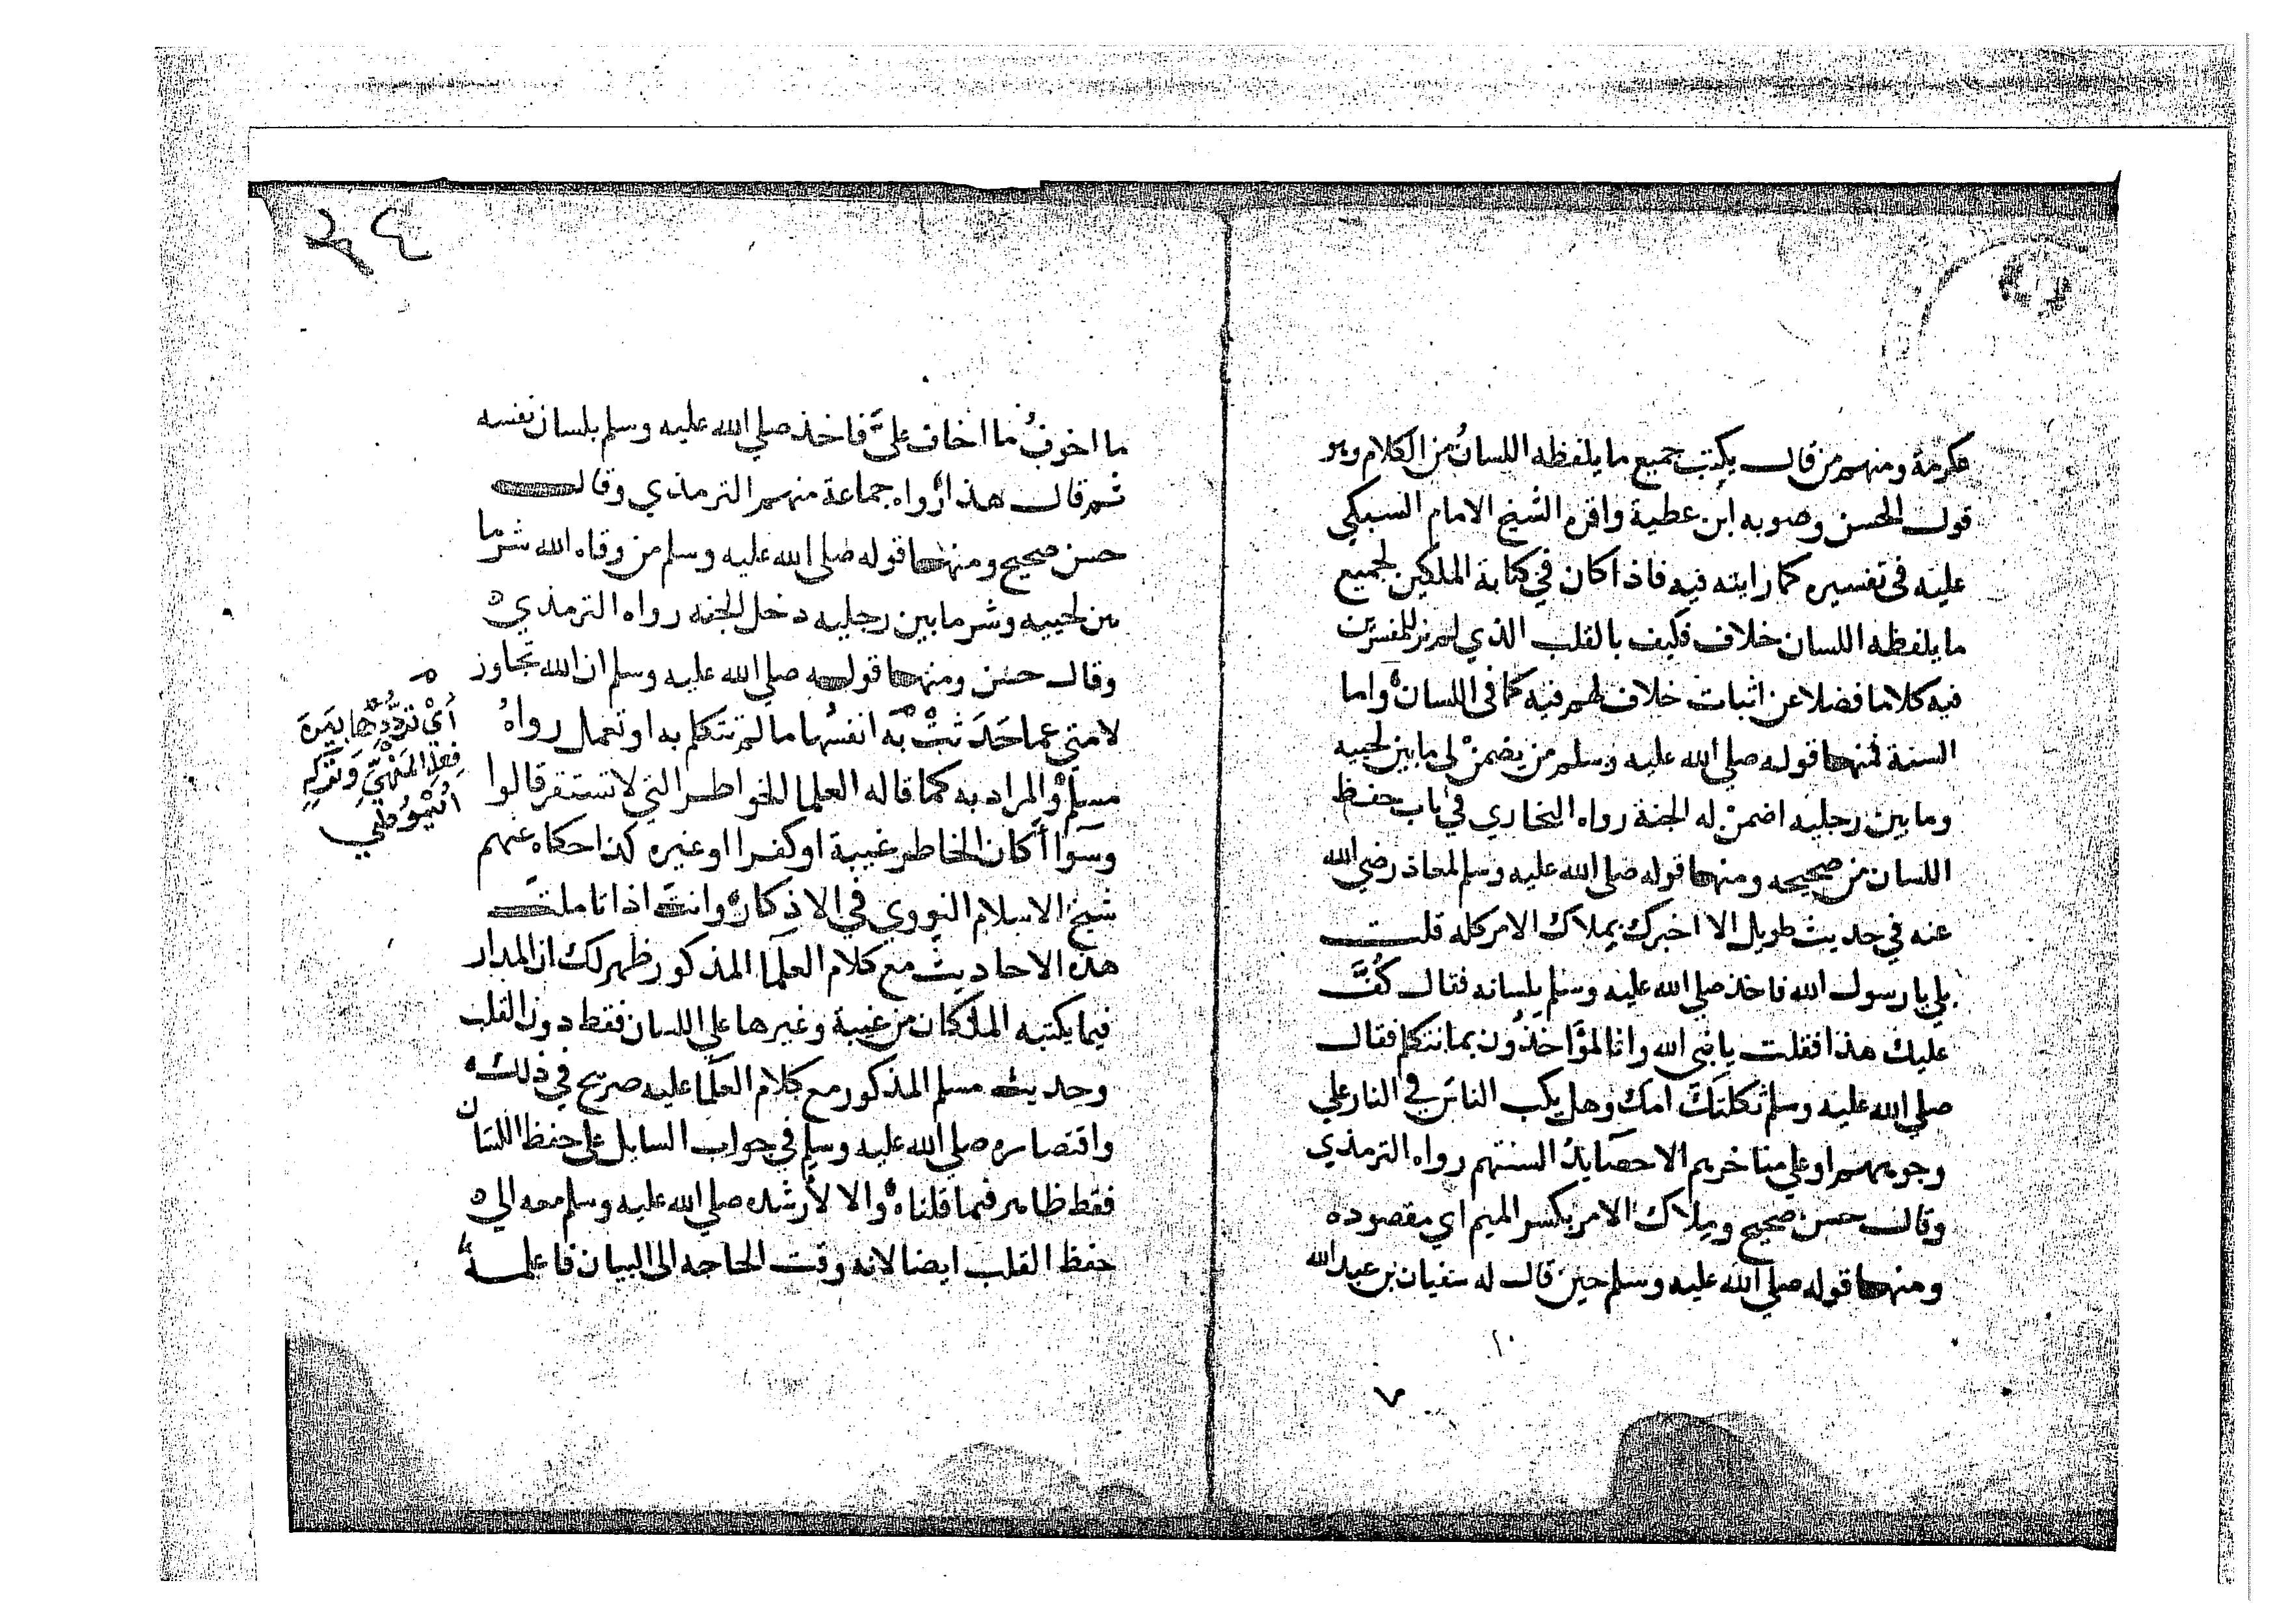 عكرمة ومنهم من قال يكتب جميع ما يلفظه اللسان من الكلام وهو
قول الحسن وصوبه ابن عطية واقره الشيخ الامام السبكي
عليه في تفسيره كما رايته فيه فاذا كان في كتابة الملكين لجميع
ما يلفظه اللسان خلاف فكيف بالقلب الذي لم نر للمفسرين
فيه كلاما فضلا عن اثبات خلاف لهم فيه كما في اللسان واما
السنة فمنها قوله صلى الله عليه وسلم من يضمن لى ما بين لحييه
وما بين رجليه اضمن له الجنة رواه البخاري في باب حفظ
اللسان من صحيحه ومنها قوله صلى الله عليه وسلم لمعاذ رضي الله
عنه في حديث طويل الا اخبرك بملاك الامر كله قلت
بلى يا رسول الله فاخذ صلى الله عليه وسلم بلسانه فقال كُفَّ
عليك هذا فقلت يا نبي الله وانا لمؤاخذون بما نتكلم فقال
صلى الله عليه وسلم ثكلتك امك وهل يكب الناس في النار على
وجوههم او على مناخرهم الا حصايد السنتهم رواه الترمذي
وقال حسن صحيح وملاك الامر بكسر الميم اي مقصوده
ومنها قوله صلى الله عليه وسلم حين قال له سفيان بن عبد الله
٧
٢٤
ما اخوفُ ما اخاف علىَّ فاخذ صلى الله عليه وسلم بلسان نفسه
ثم قال هذا رواه جماعة منهم الترمذي وقال
حسن صحيح ومنها قوله صلى الله عليه وسلم من وقاه الله شر ما
بين لحييه وشر ما بين رجليه دخل الجنه رواه الترمذي
وقال حسن ومنها قوله صلى الله عليه وسلم ان الله تجاوز
لامتي عما حَدَثَتْ به انفسُها ما لم تتكلم به او تعمل رواهُ
مسلم والمراد به كما قاله العلما الخواطر التي لا تستقر قالوا
وسوآ أكان الخاطر غيبة او كفرا او غيره كذا حكاه عنهم
شيخ الاسلام النووي في الاذكار وانت اذا تاملت
هذه الاحاديث مع كلام العلما المذكور ظهر لك ان المدار
فيما يكتبه الملكان من غيبة وغيرها على اللسان فقط دون القلب
وحديث مسلم المذكور مع كلام العلما عليه صريح في ذلك
واقتصاره صلى الله عليه وسلم في جواب السايل على حفظ اللسان
فقط ظاهر فيما قلناه والا لأرشده صلى الله عليه وسلم معه الى
حفظ القلب ايضا لانه وقت الحاجه الى البيان فاعلمه
أيْ تردّدُها بَيْن
فِعل المَنْهيّ وتَرْكِهِ
اسيوطي